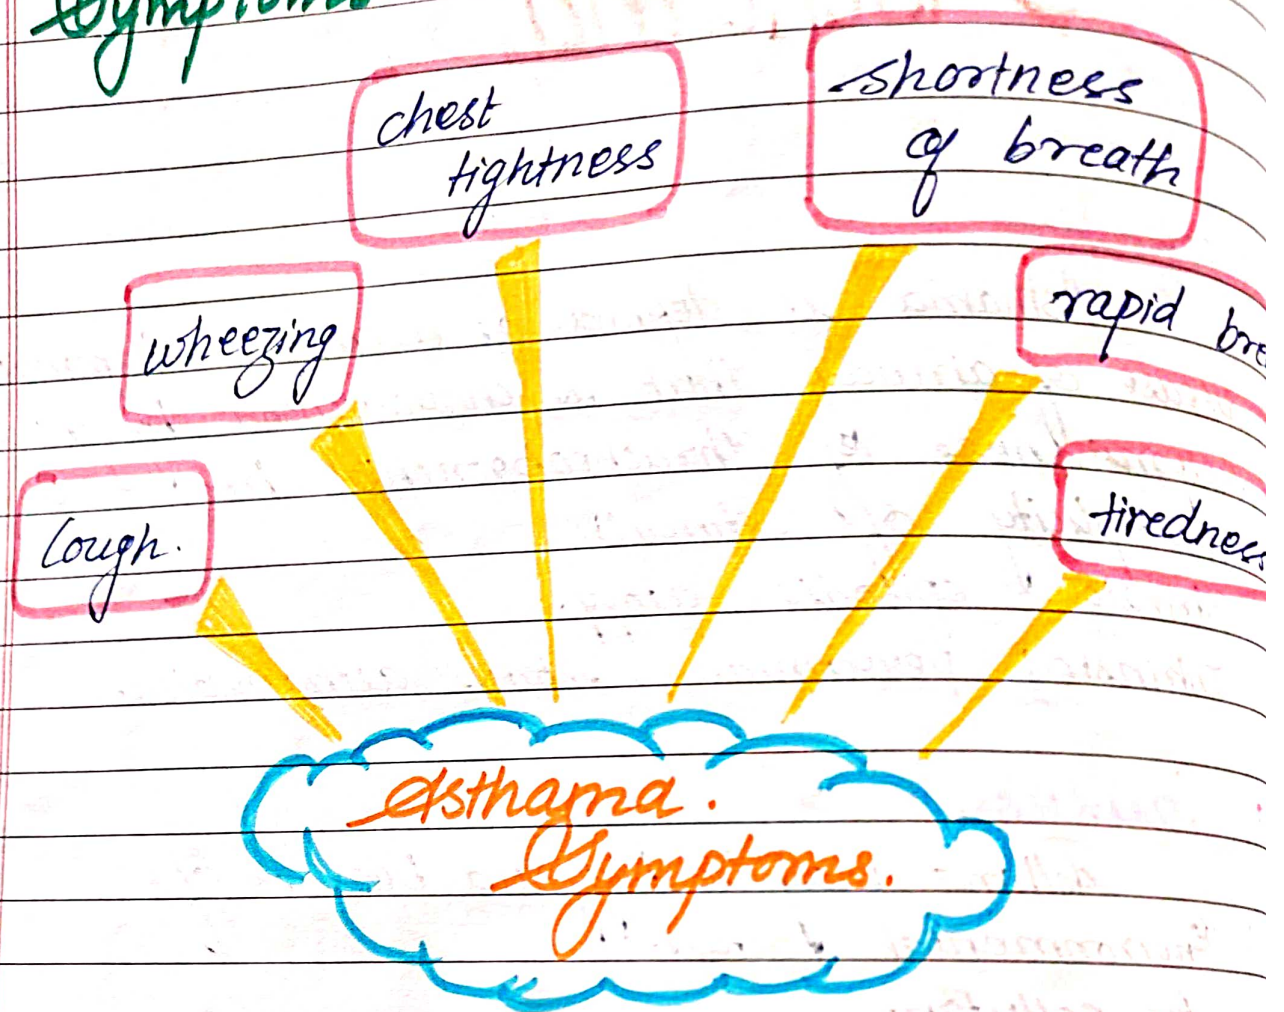 Symptoms
chest
tightness
shortness
of breath
wheezing
rapid
Cough.
tiredness
Asthama.
Symptoms.